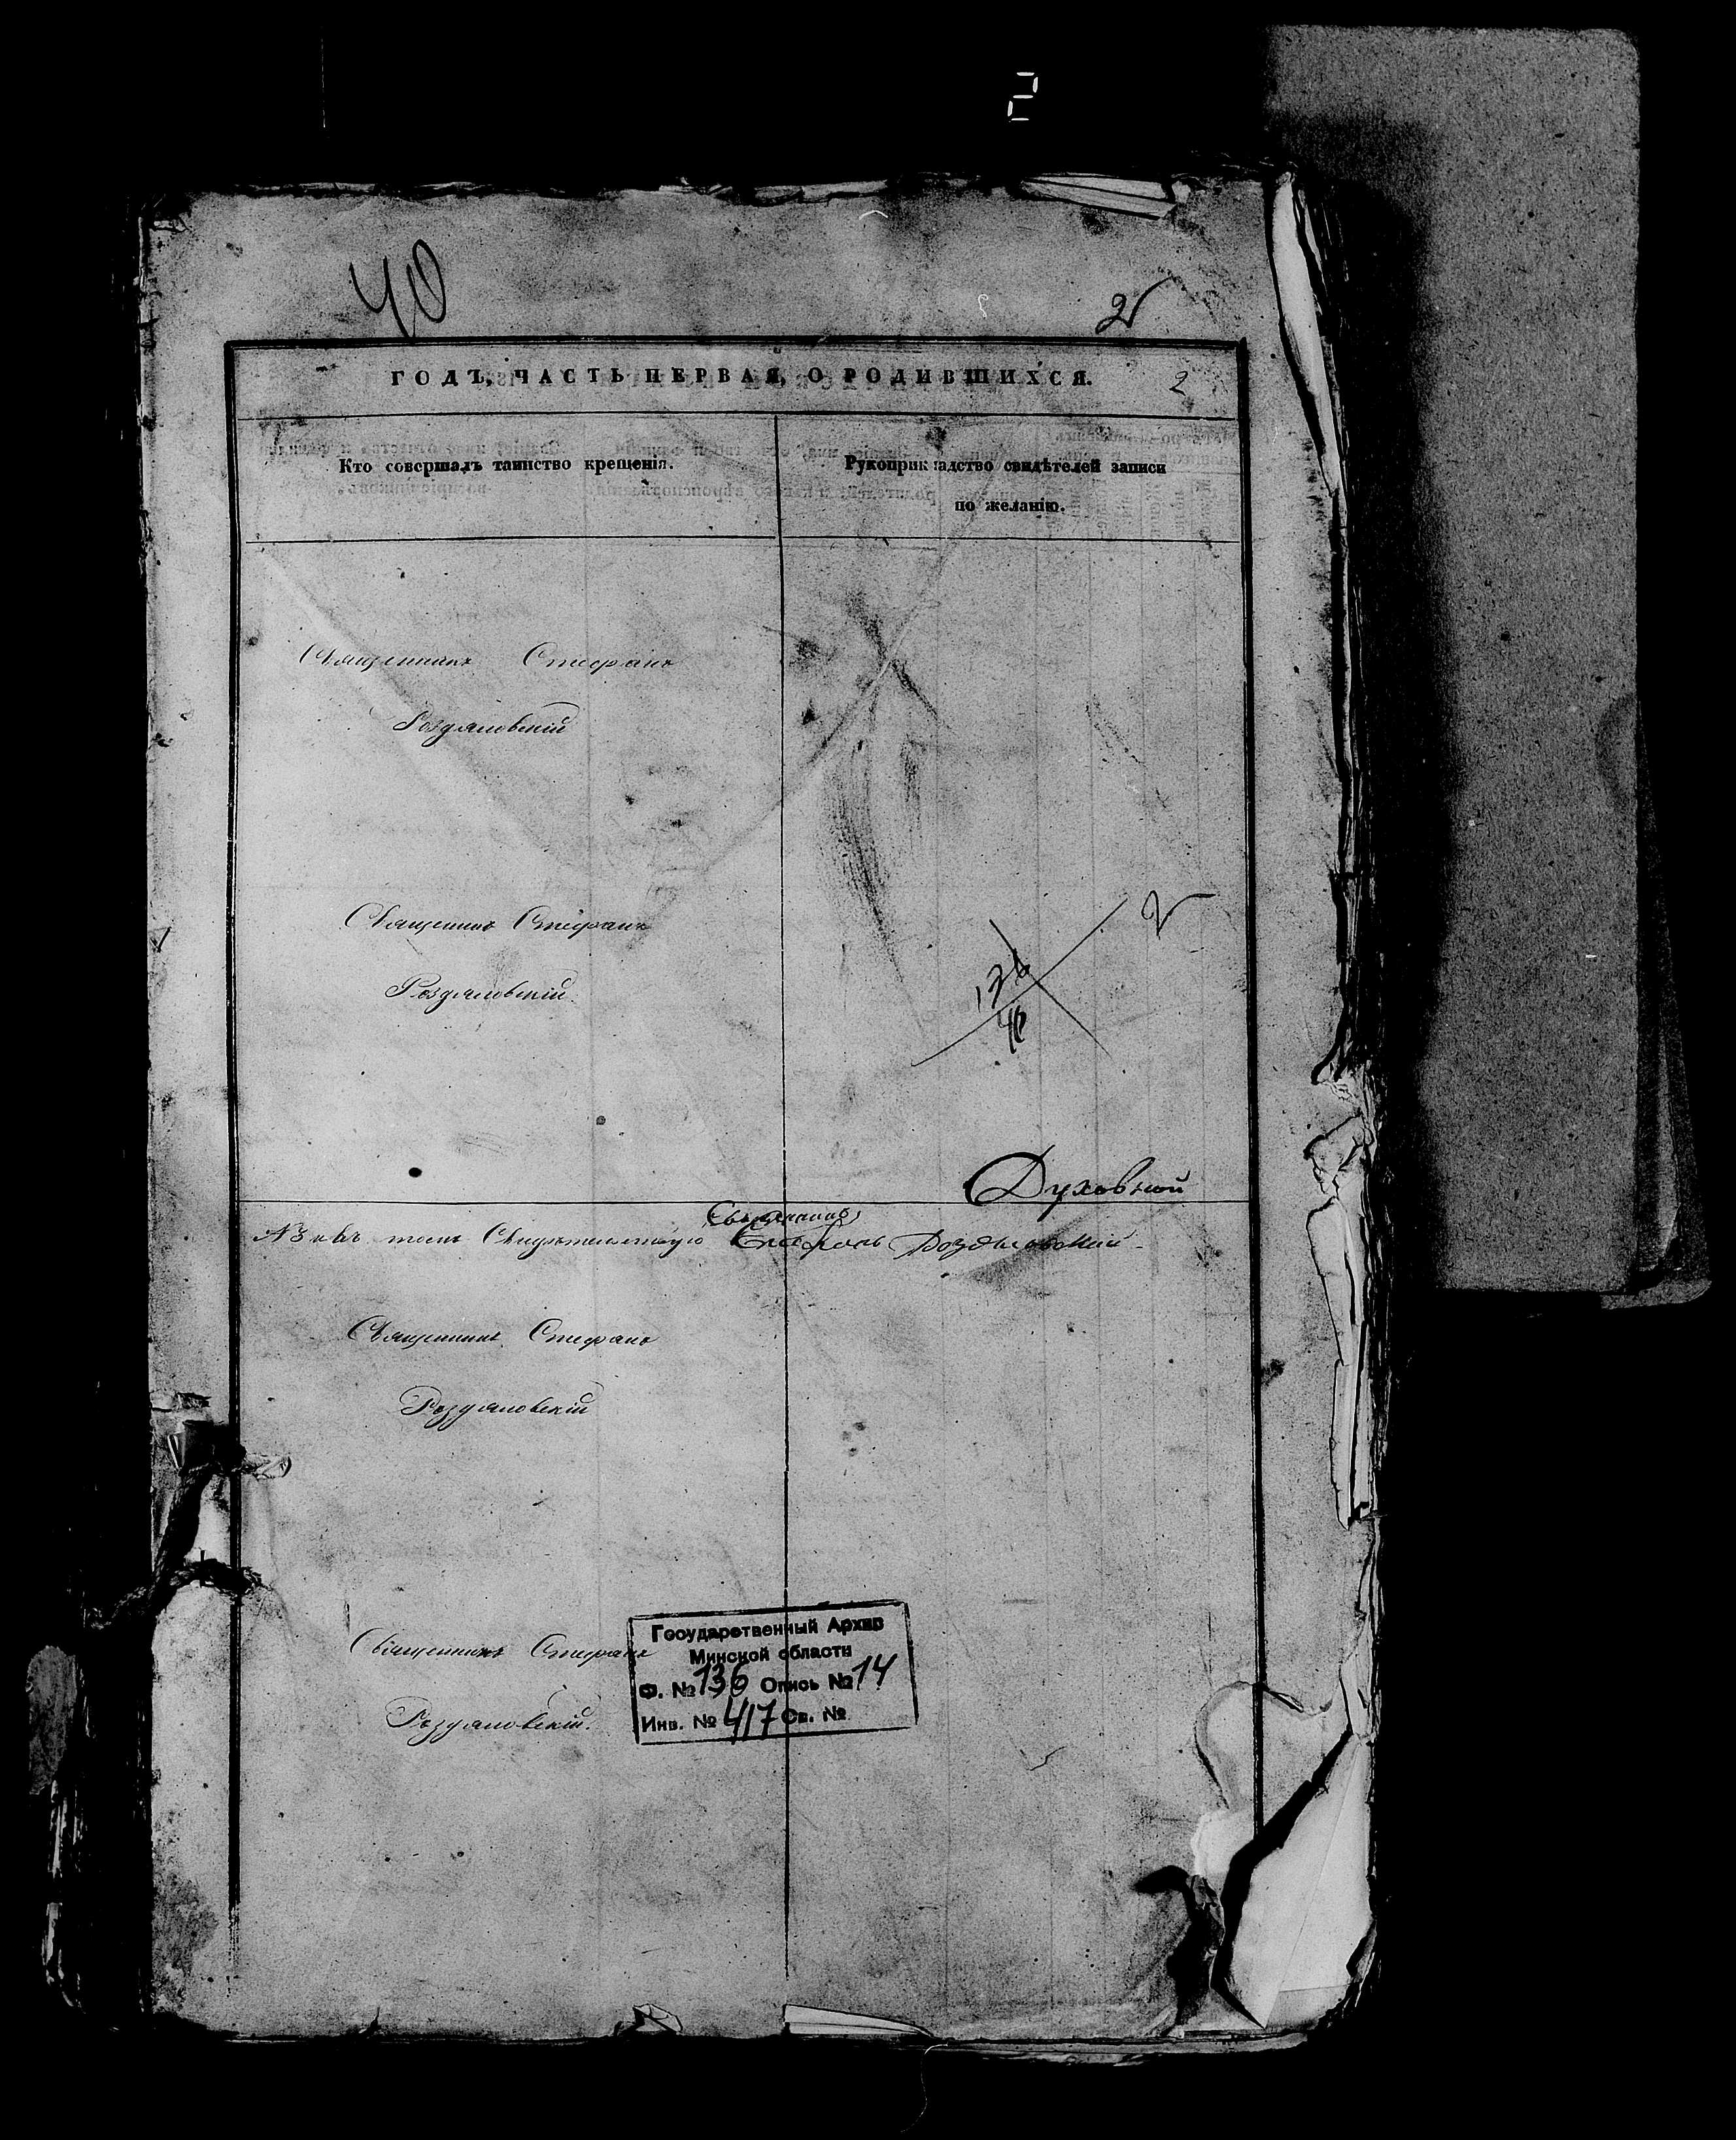 2
40
2
ГОДЪ, ЧАСТЬ ПЕРВАЯ, О РОДИВШИХСЯ.
2
Кто совершалъ таинство крещенія.
Рукоприкладство свидѣтелей записи
по желанію.
Священникъ Стефанъ
Роздяловскій
Священникъ Стефанъ
Роздяловскій.
2
136
40
Духовной
Священникъ
въ томъ Свидѣтельствую Стефанъ Роздяловскій
Священникъ Стефанъ
Роздяловскій
Священникъ Стефанъ
Роздяловскій.
Государственный Архив
Минской области
Ф. № 136 Опись № 14
Инв. № 417 Св. №